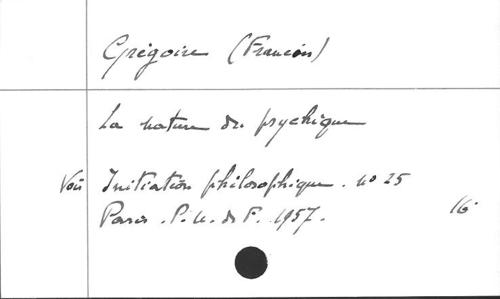 Grégoire (François)
La nature du psychique
Voir Initiation philosophique. no 25
Paris. P. U. de F. 1957. 16°